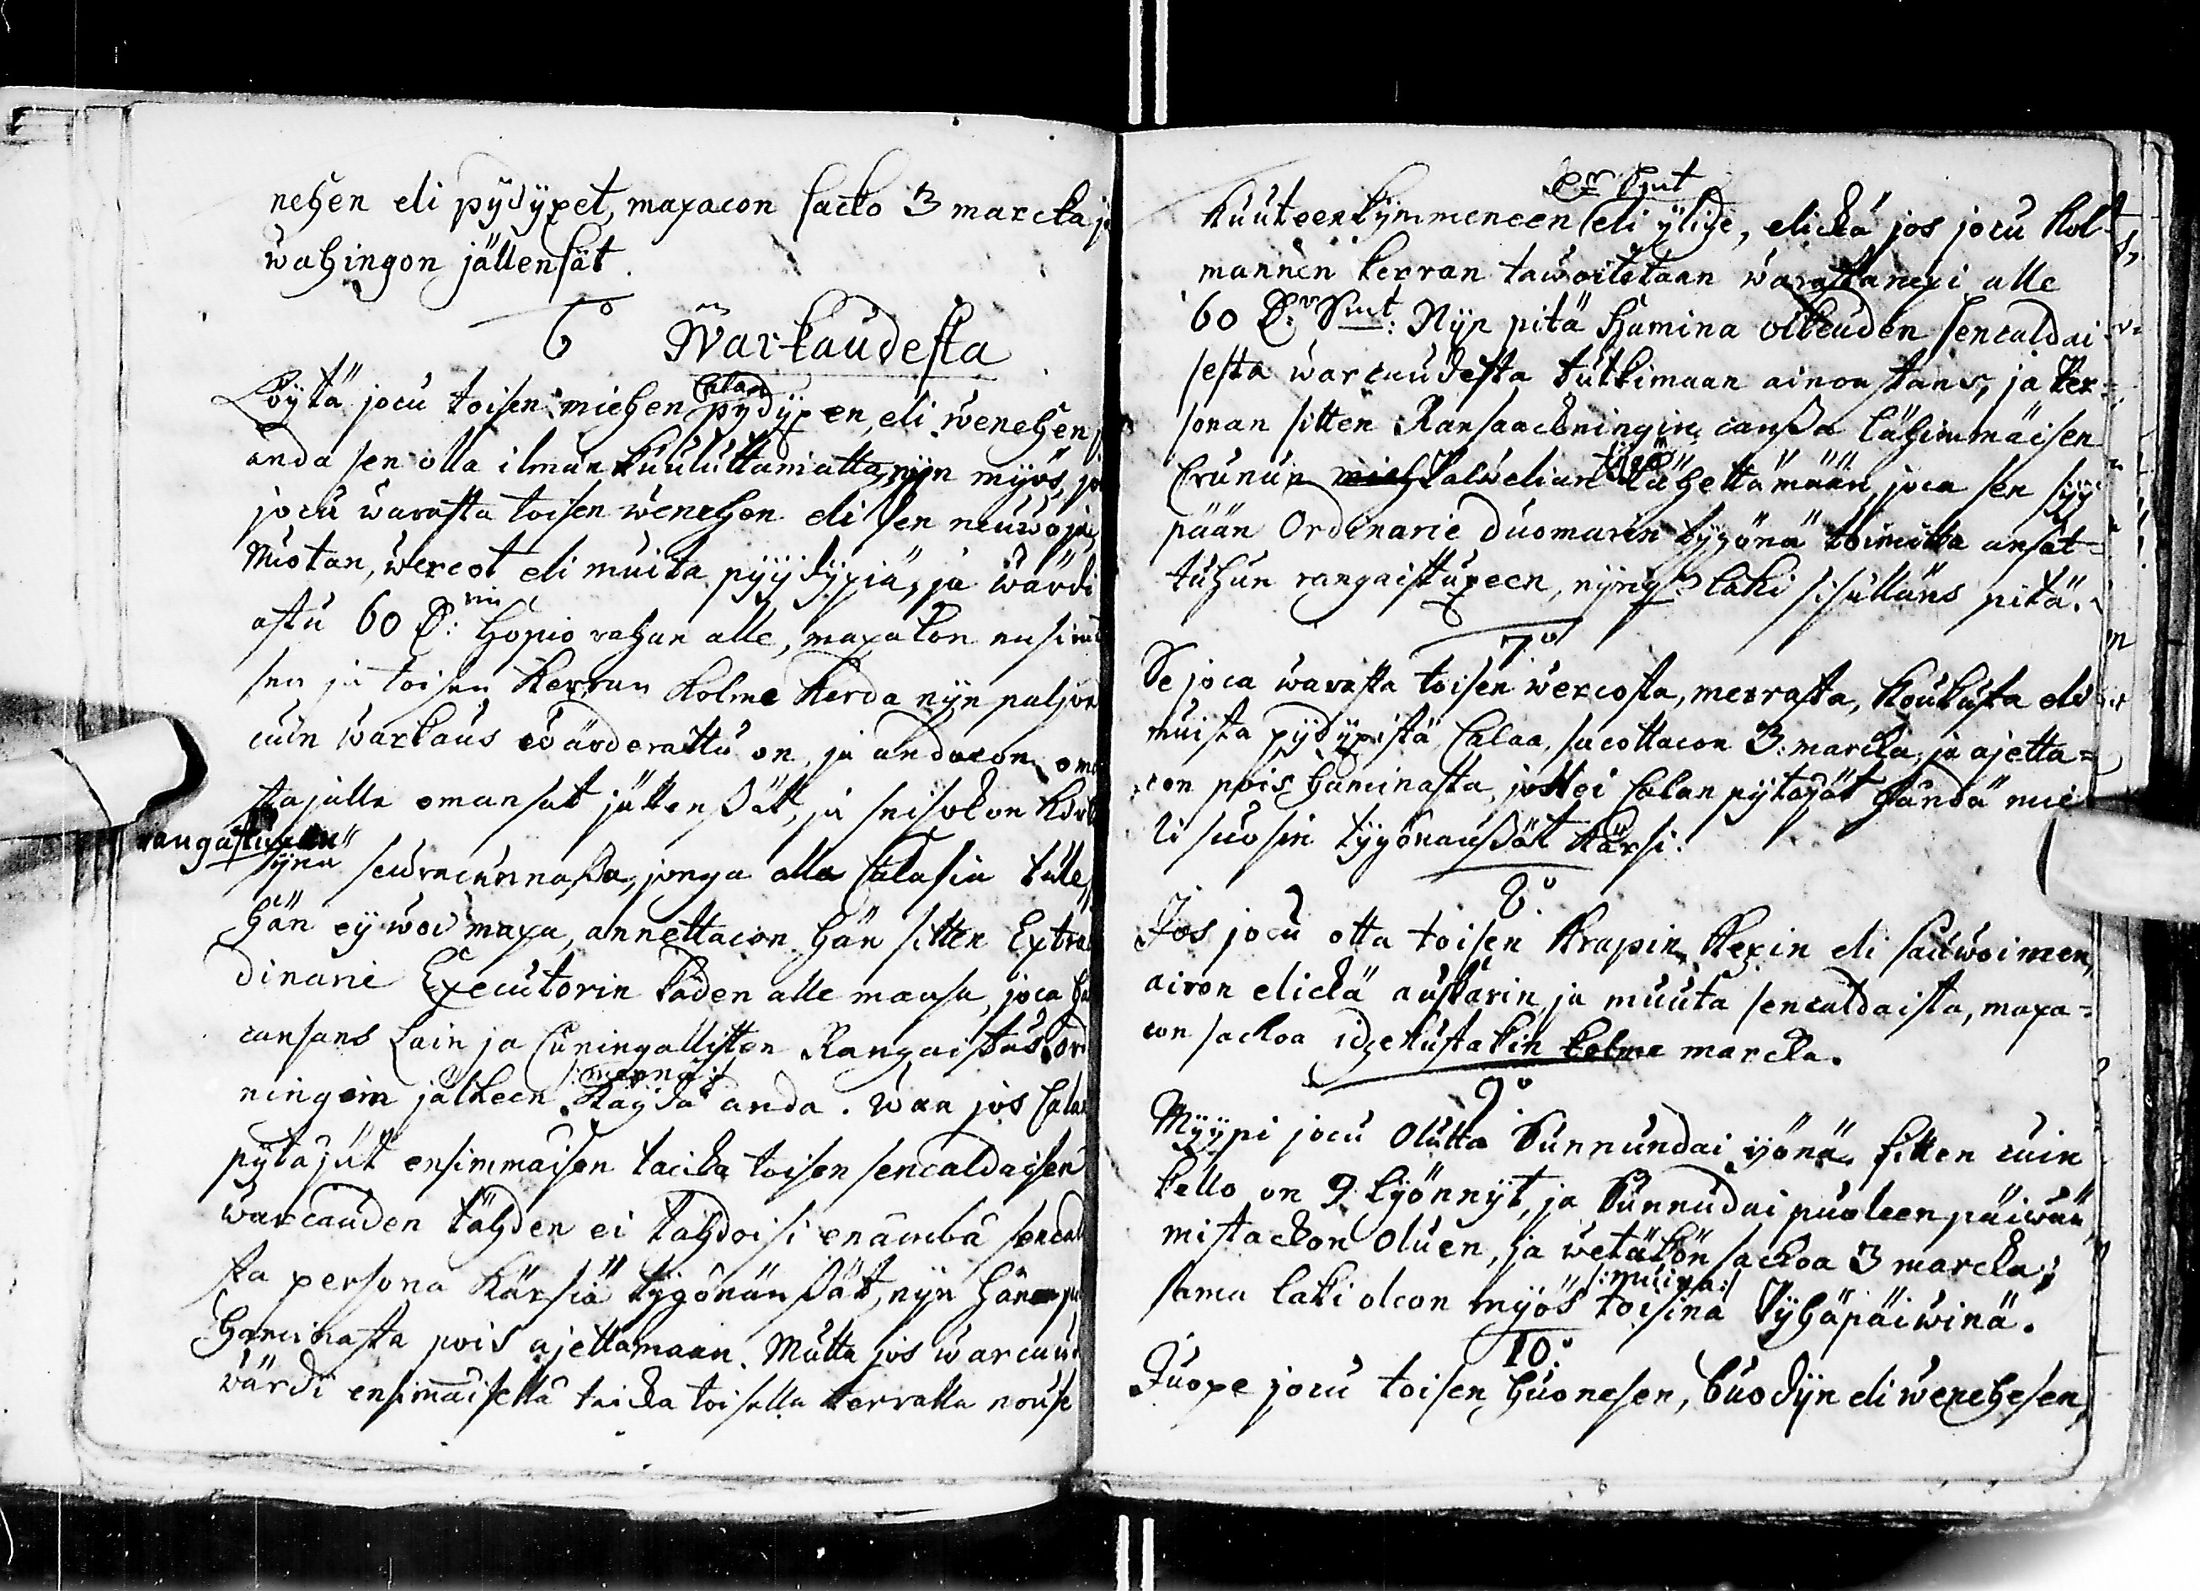 nehen eli pydyxet, maxacon sacko 3 marcka ja
wahingon jällensät.
6° Warkaudesta
Löytä jocu toisen miehen Calan pydyxen, eli wenehen
anda sen olla ilman kuuluttamatta, nijn myös, jos
jocu warasta toisen wenehen eli sen neuwoja,
Nuotan, wercot eli muita pyydyxiä, ja wärdi
astu 60 D: hopio rahan alle, maxakon ensimäi
sen ja toisen kerran kolme kerda nijn paljon
cuin warkaus wärderattu on, ja andacon oma
stajalle omansat jällenßät, ja seisokon
rangastuxen
sijna seuracunnaßa, jonga alla Calasia tule,
hän ey woi maxa, annettacon hän sitten Extraor
dinarie Executorin käden alle maasa, joca hä
cansans Lain ja Cuningallisten Rangaistus ord
ningein jälkeen /:menna:/ käydä anda. Wan jos Calan
pytäjät ensimmäisen taicka toisen sencaldaisen
warcauden tähden ei tahdoisi enämbä sencal
sta persona kärsiä tygönänßät, nijn hän
Haminasta pois ajettamaan. Mutta jos warcau
wärdi ensimäisellä taicka toisella kerralla nouse
Dr Smt
kuuteenkymmeneen eli ylidze, elickä jos jocu kol
mannen kerran tawoitetaan warastanexi alle
60 D:r Smt: Nijn pitä Hamina oikeuden sencaldai
sesta warcaudesta tutkimaan ainoastans, ja Per-
sonan sitten Ransaackningin canßa lähimmäisen
Crunun palwelian tygö lähettämään, joca sen syy
pään Ordinarie duomarin tygönä toimitta ansat-
tuhun rangaistuxeen, laki sisälläns pitä.
7°
Se joca warasta toisen wercosta, merrasta, koukusta eli
muista pydyxistä Calaa, sacottacon 3: marcka, ja ajetta-
con pois haminasta, jollei Calan pytäjät händä mie
li suosin tygönänßät kärsi.
8°
Jos jocu otta toisen Krapin, Kexin eli sauwoimen,
airon elickä auskarin ja muuta sencaldaista, maxa-
con sackoa idzekustakin kolme marcka.
9°
Myypi jocu Olutta Sunnundai yönä, sitten cuin
kello on 9 lyönnyt, ja Sunnudai puoleen päiwän
mistackon Oluen, ja wetäkön sackoa 3 marcka;
sama laki olcon myös toisina /:muina:/ Pyhäpäiwinä.
10°
Juoxe jocu toisen huonesen, buodyn eli wenehesen,